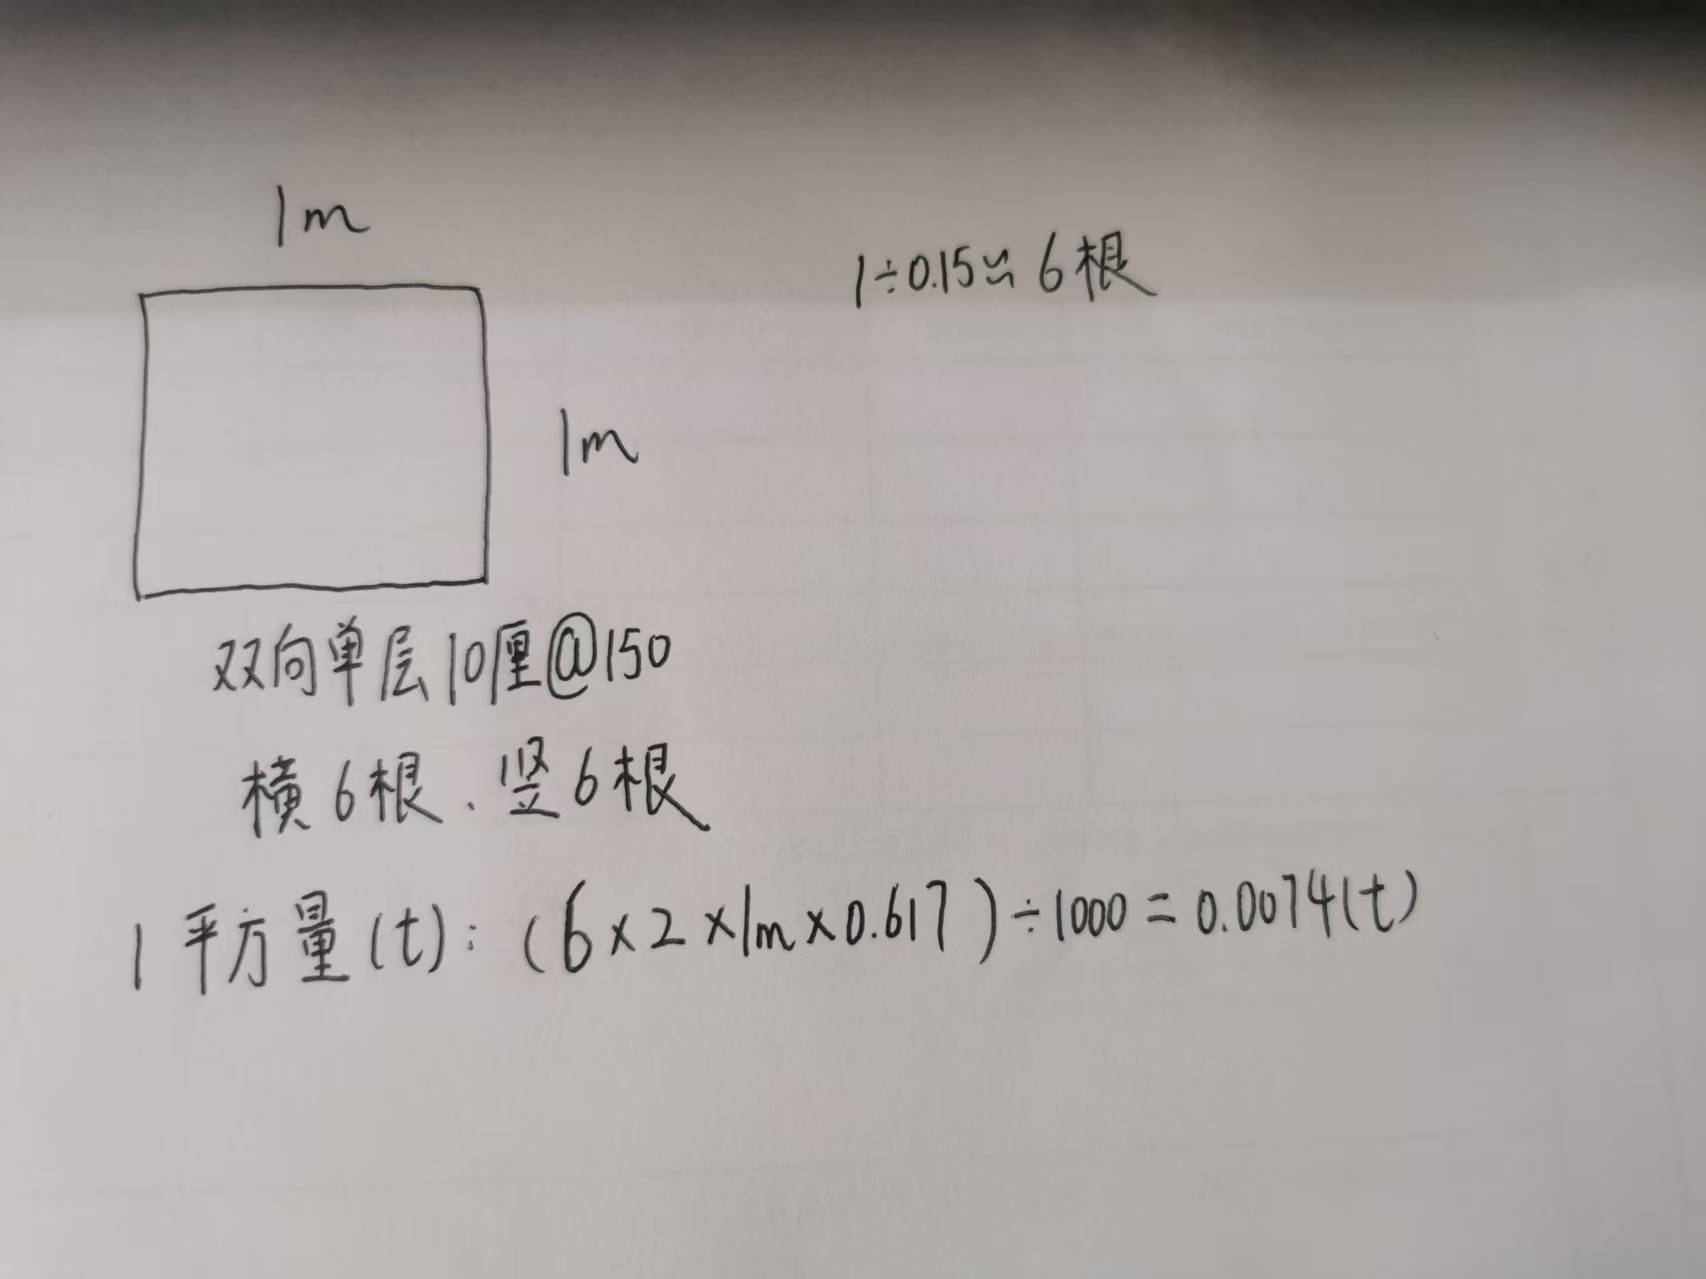 1m
1÷0.15≈6根
1m
双向单层10厘@150
横6根、竖6根
1平方量(t):(6×2×1m×0.617)÷1000=0.0074(t)